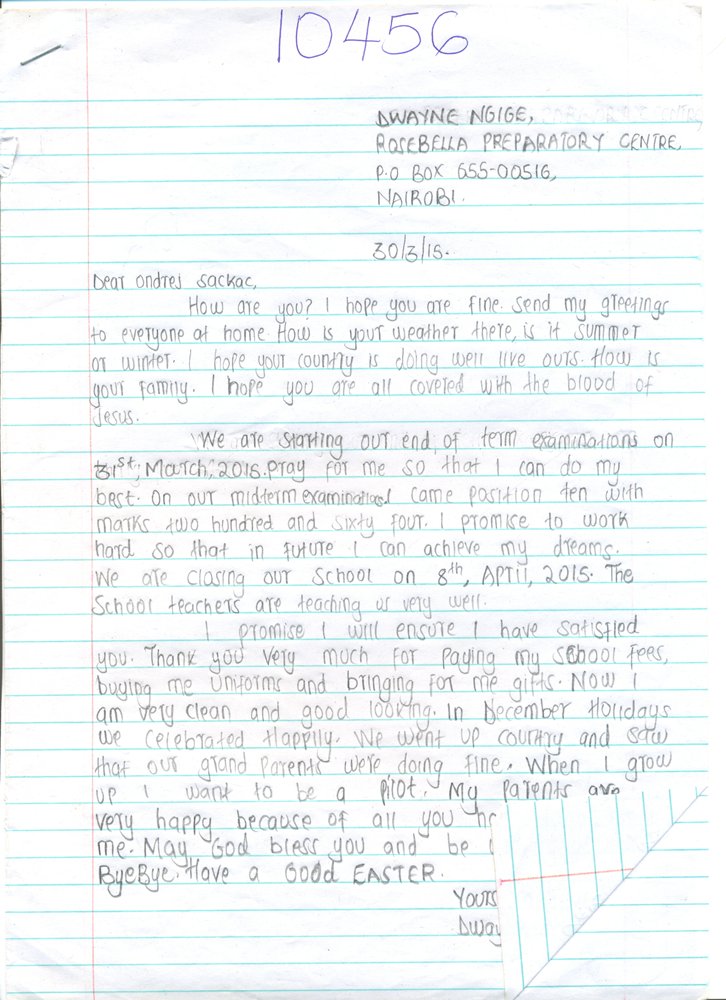 10456
DWAYNE NGIGE,
ROSEBELLA PREPARATORY CENTRE,
P.O BOX 655-00516,
NAIROBI.
30/3/15.
Dear ondrej sackac,
How are you? I hope you are fine. Send my greetings
to everyone at home. How is your weather there, is it summer
or winter. I hope your country is doing well live ours. How is
your family. I hope you are all covered with the blood of
Jesus.
We are starting our end of term examinations on
31st, March, 2015. Pray for me so that I can do my
best. On our midterm examination I came position ten with
marks two hundred and sixty four. I promise to work
hard so that in future I can achieve my dreams.
We are closing our school on 8th, April, 2015. The
school teachers are teaching us very well.
I promise I will ensure I have satisfied
you. Thank you very much for paying my school fees,
buying me uniforms and bringing for me gifts. Now I
am very clean and good looking. In December Holidays
we celebrated Happily. We went up country and saw
that our grand Parents were doing fine. When I grow
up I want to be a pilot. My parents are
very happy because of all you
me. May God bless you and be
ByeBye. Have a Good EASTER.
Yours
Dway